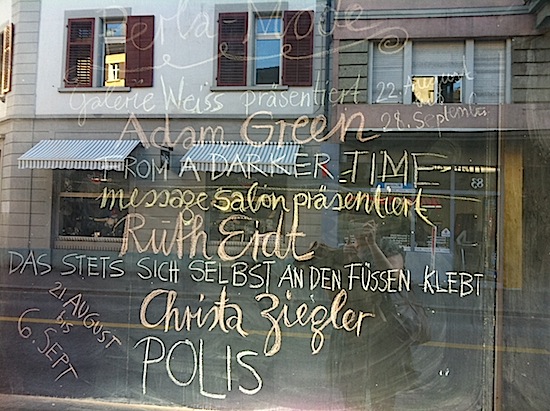 Perla Mode
Galerie Weiss präsentiert
22. August
bis
28. September
Adam Green
FROM A DARKER TIME
message salon präsentiert
Ruth Erdt
DAS STETS SICH SELBST AN DEN FÜSSEN KLEBT
21. AUGUST
bis
6. SEPT
Christa Ziegler
POLIS
68